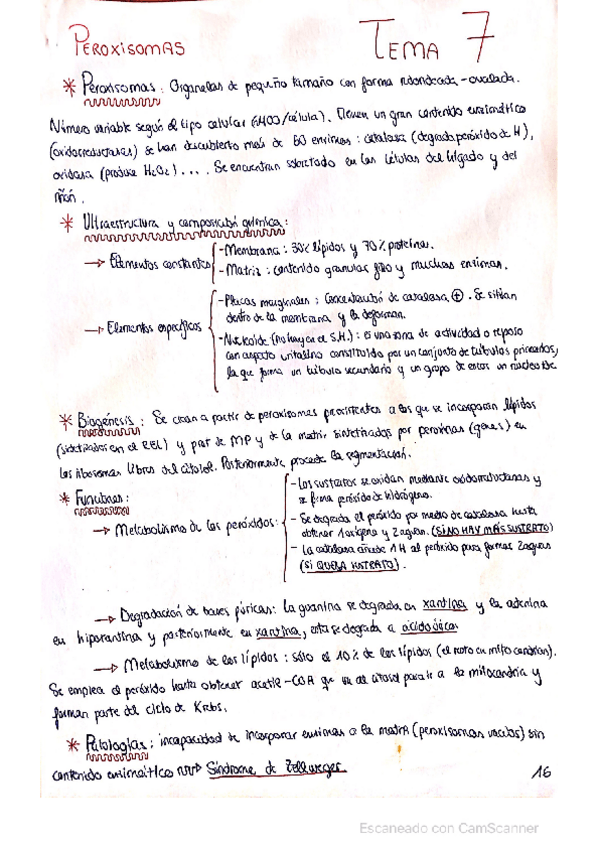 PEROXISOMAS TEMA 7
* Peroxisomas: Organelas de pequeño tamaño con forma redondeada-ovalada.
Número variable según el tipo celular (≈400/célula). Tienen un gran contenido enzimático
(oxidorreductasas) se han descubierto más de 60 enzimas: catalasa (degrada peróxido de H),
oxidasa (produce H2O2).... Se encuentran sobretodo en las células del hígado y del
riñón.
* Ultraestructura y composición química:
→ Elementos constantes
- Membrana: 30% lípidos y 70% proteína.
- Matriz: contenido granular fino y muchas enzimas.
→ Elementos específicos
- Placas marginales: Concentración de catalasa ⊕. Se sitúan
dentro de la membrana y la deforman.
- Nucleoide (No hay en el S.H.): es una zona de actividad o reposo
con aspecto cristalino constituido por un conjunto de túbulos primarios,
la que forma un túbulo secundario y un grupo de estos un nucleoide.
* Biogénesis: Se crean a partir de peroxisomas preexistentes a los que se incorporan lípidos
(sintetizados en el REL) y prot de MP y de la matriz sintetizadas por peroxinas (genes) en
los ribosomas libres del citosol. Posteriormente procede la segmentación.
* Funciones:
→ Metabolismo de los peróxidos:
- Los sustratos se oxidan mediante oxidorreductasas y
se forma peróxido de hidrógeno.
- Se degrada el peróxido por medio de catalasas hasta
obtener 1 oxígeno y 2 aguas. (SI NO HAY MÁS SUSTRATO)
- La catalasa añade 1H al peróxido para formar 2 aguas
(SI QUEDA SUSTRATO).
→ Degradación de bases púricas: la guanina se degrada en xantina y la adenina
en hipoxantina y posteriormente en xantina, esta se degrada a ácido úrico
→ Metabolismo de los lípidos: sólo el 10% de los lípidos (el resto en mitocondrias).
Se emplea el peróxido hasta obtener acetil-COA que va al citosol para ir a la mitocondria y
forman parte del ciclo de Krebs.
* Patologías: incapacidad de incorporar enzimas a la matriz (peroxisomas vacíos) sin
contenido enzimático → Síndrome de Zellweger.
16
Escaneado con CamScanner